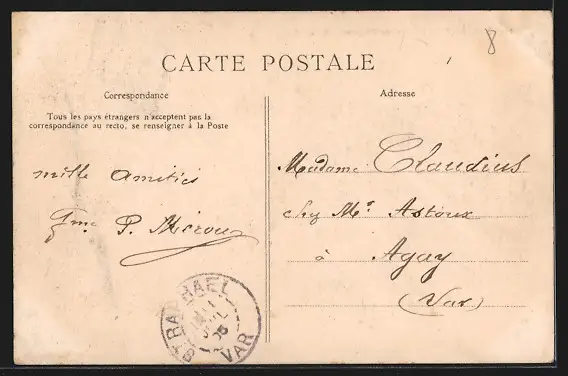 8
CARTE POSTALE
Correspondance
Tous les pays étrangers n'acceptent pas la
correspondance au recto, se renseigner à la Poste
mille amitiés
P. Mérou
Adresse
Madame Claudius
chez Mr Astoux
à Agay
(Var)
ST RAPHAEL
VAR